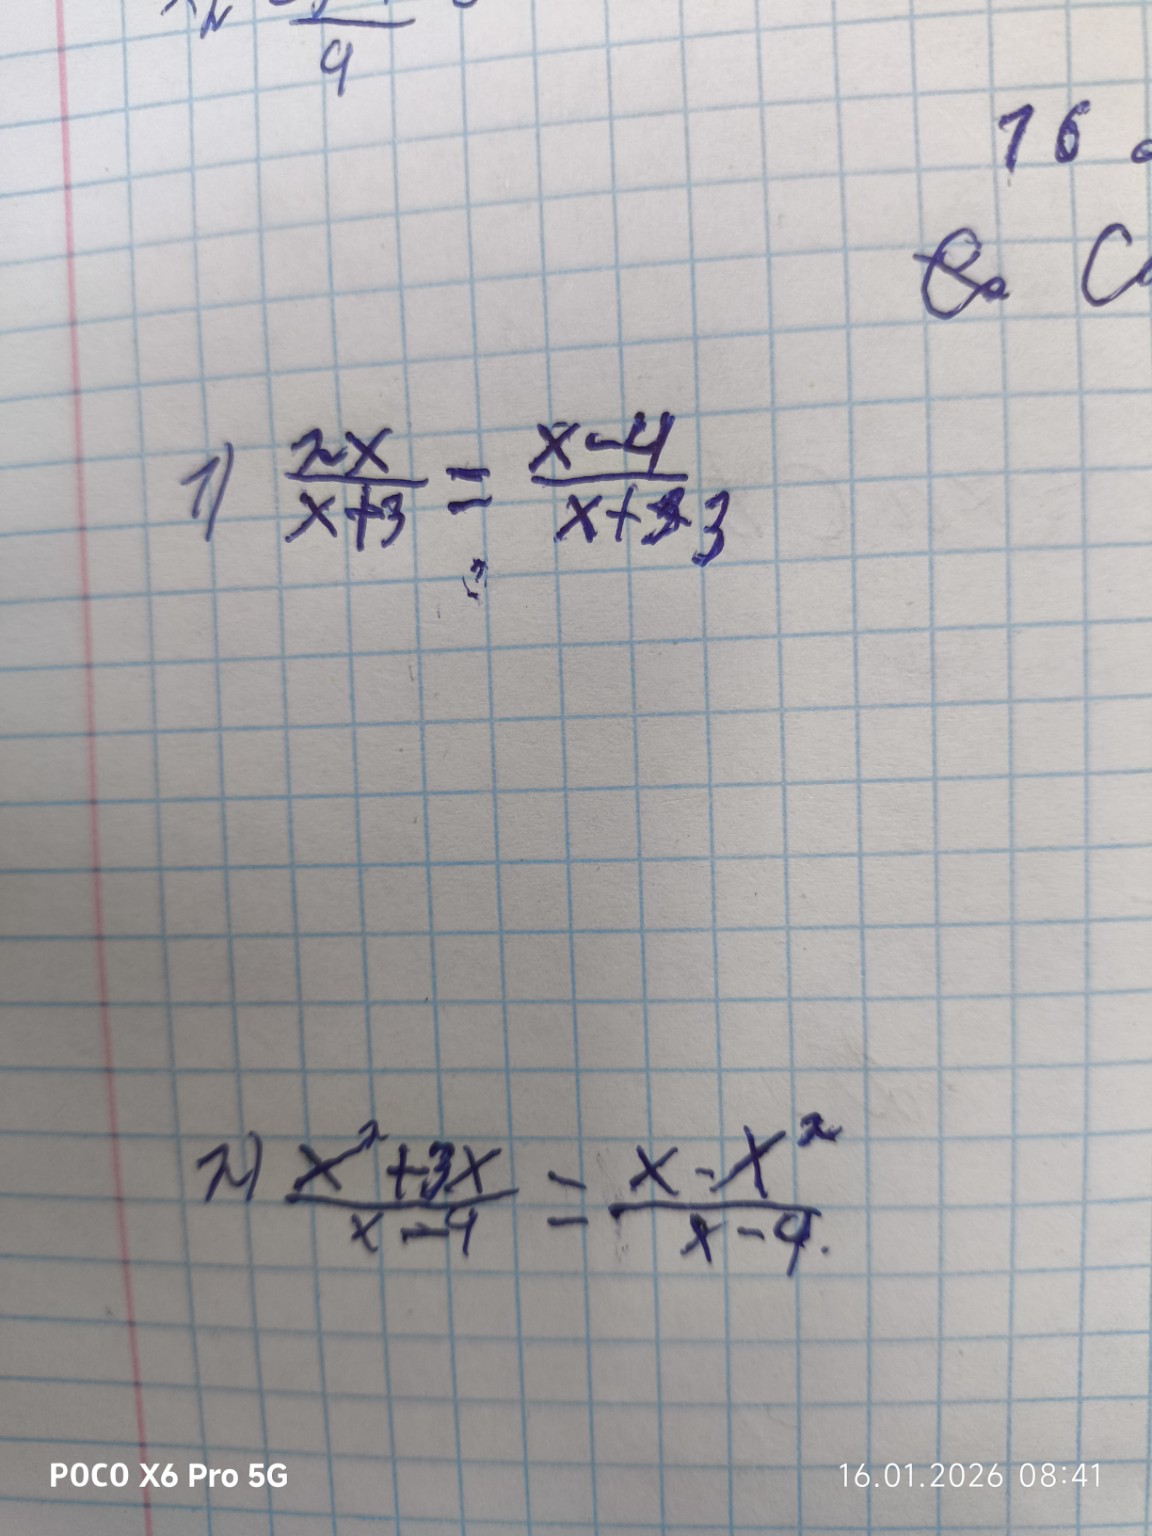 9
16
1) 2x/x+3 = x-4/x+3 3
2) x²+3x/x-4 = x-x²/x-4.
POCO X6 Pro 5G
16.01.2026 08:41